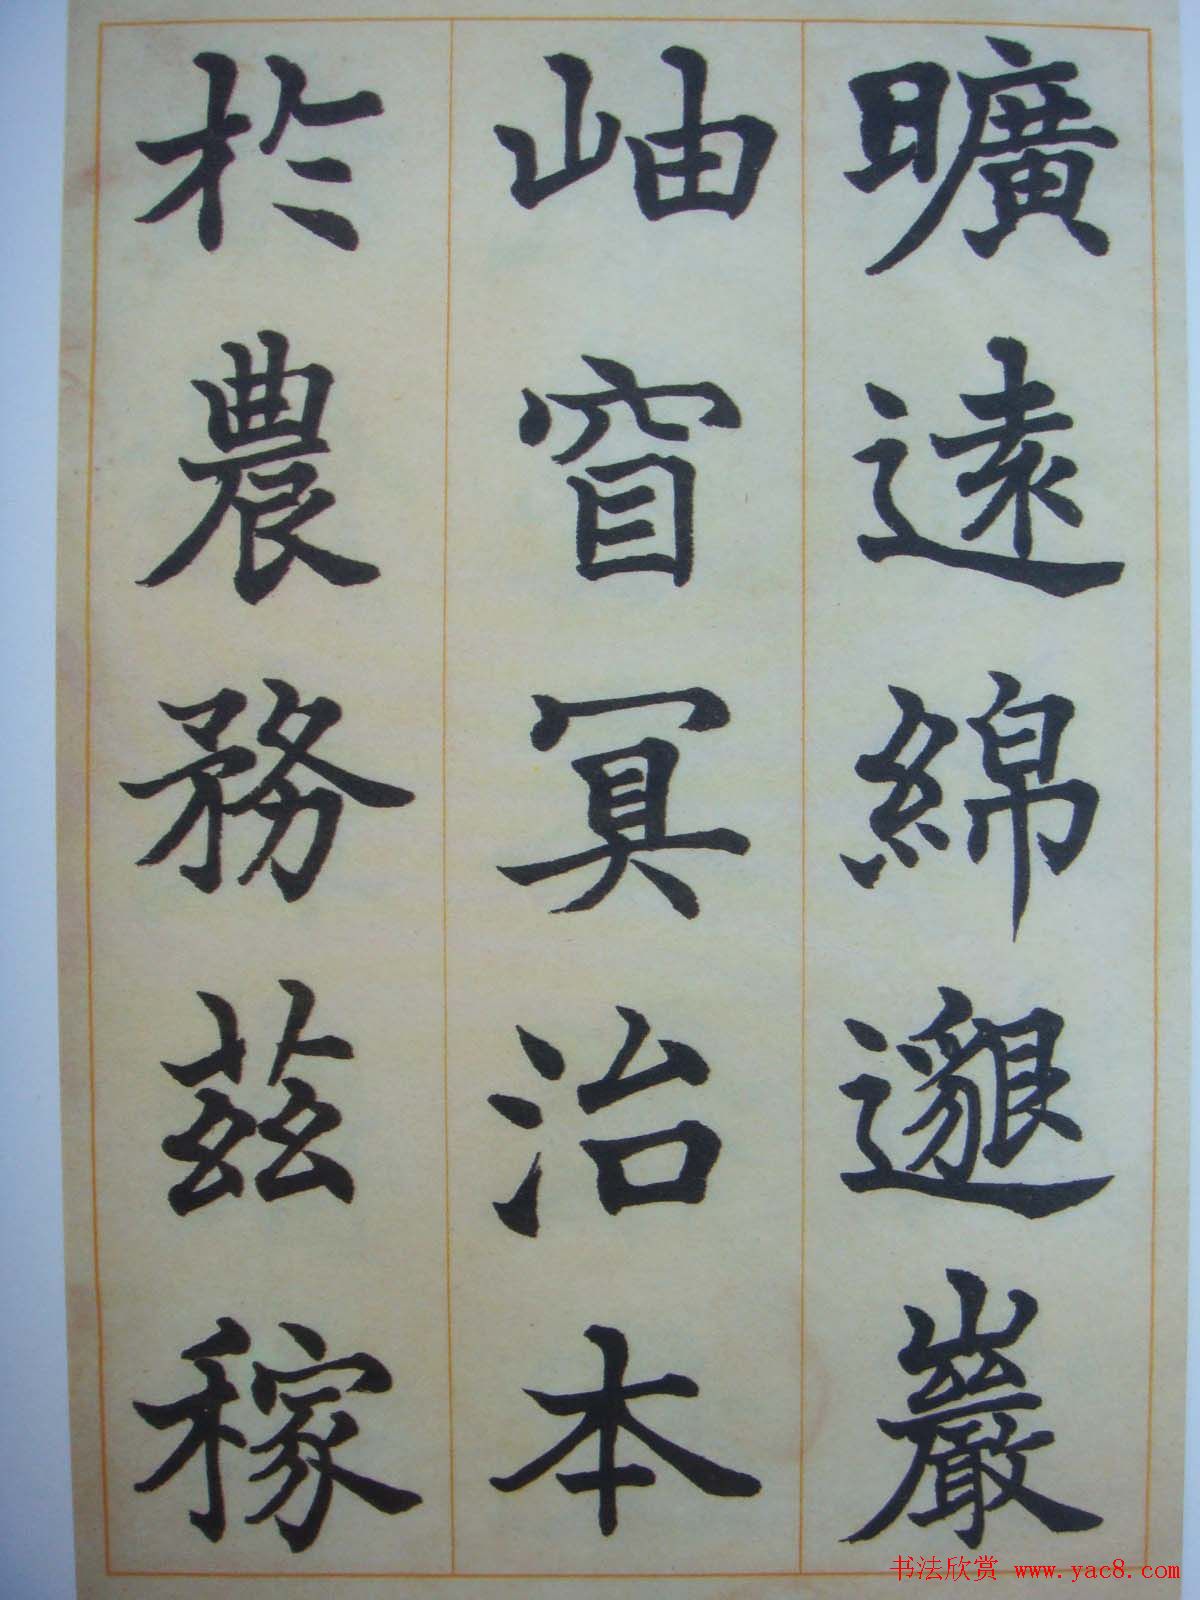 曠遠綿邈巖
岫窅冥治本
於農務茲稼
书法欣赏 www.yac8.com